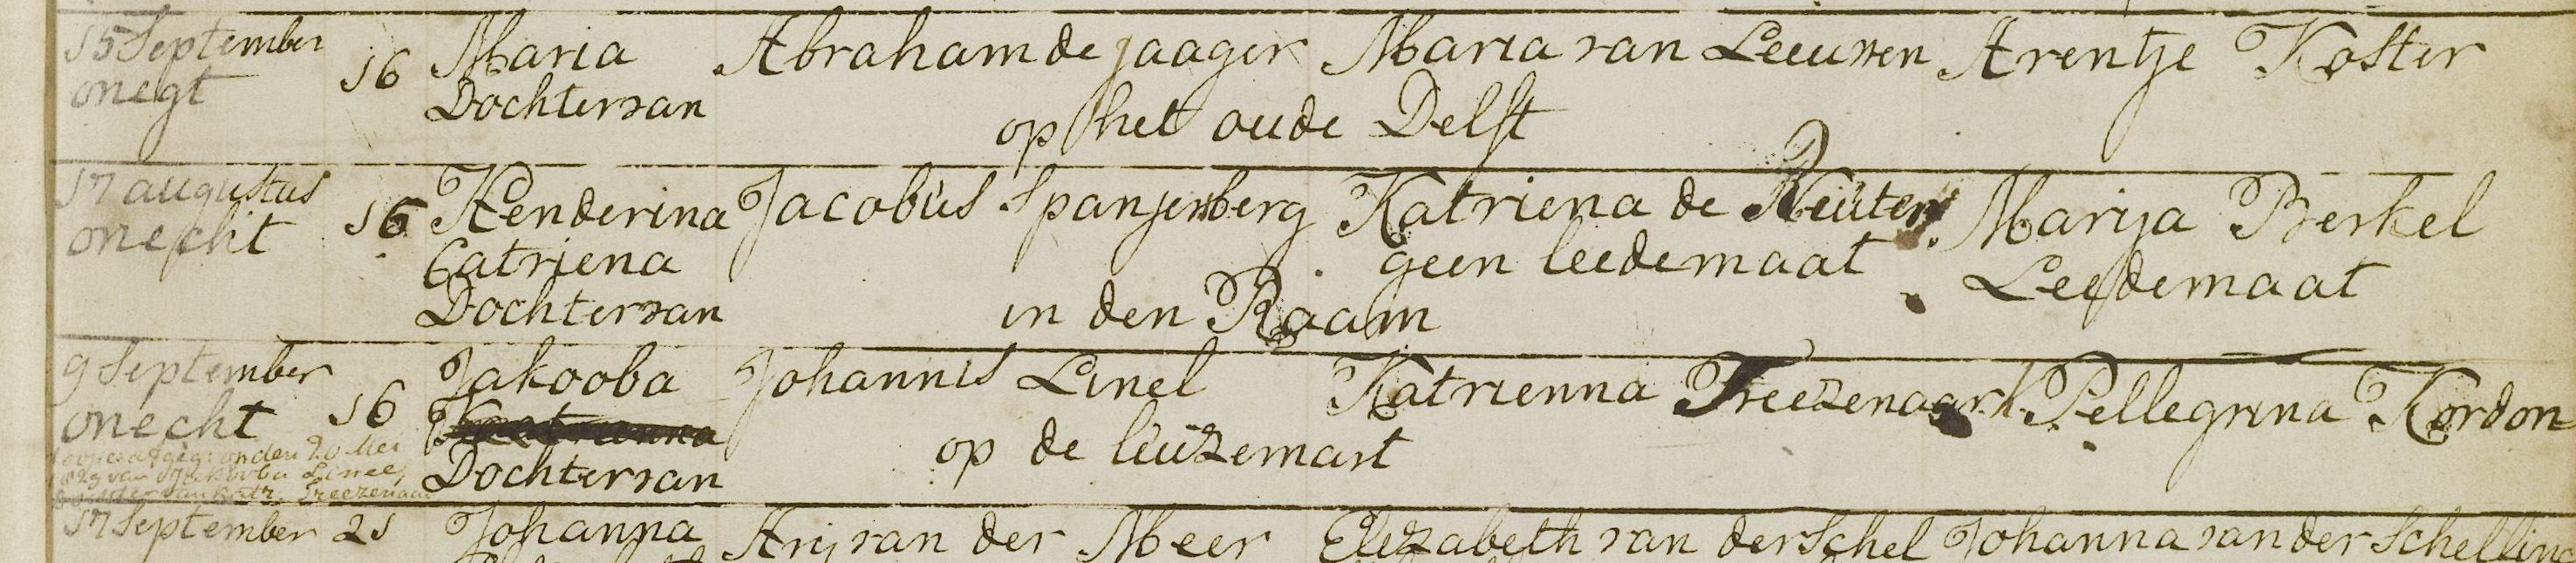 15 September 16 Maria Abraham de jaager Maria van Leeuwen Arentje Koster
onegt Dochter van op het oude Delft
17 augustus 16 Henderina Jacobus Spanjersberg Katriena de Reuter Marija Berkel
onecht Catriena geen leedemaat Leedemaat
Dochter van in den Raam
9 September 16 Jakooba Johannis Linel Katrienna Treezenaar Pellegrina Kordon
onecht op de leuzemart
den 20 Mei
van Jakooba Linee
Dochter van
van Treezenaar
17 September 21 Johanna Arij van der Meer Elezabeth van der Schel Johanna van der Schelling